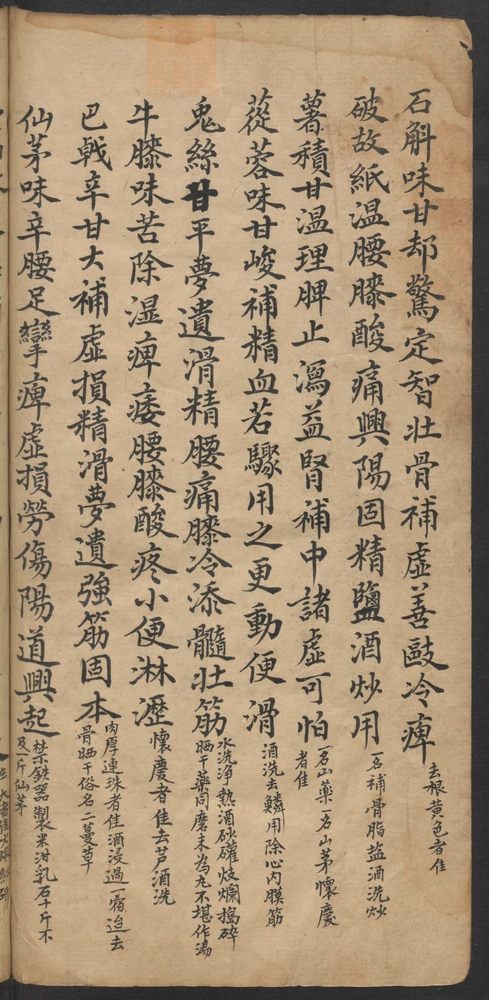 石斛味甘却驚定智壯骨補虛善敺冷痺 去根黄色者佳
破故紙温腰膝酸痛興陽固精鹽酒炒用 一名補骨脂盐酒洗炒
薯積甘温理脾止瀉益腎補中諸虛可怕 一名山藥一名山茅懷慶者佳
蓯蓉味甘峻補精血若驟用之更動便滑 酒洗去鱗用除心内膜筋
兎絲甘平夢遺滑精腰痛膝冷添髓壯筋 水洗浄熱酒砂罐炆爛搗碎晒干藥同磨末為丸不堪作湯
牛膝味苦除湿痺痿腰膝酸疼小便淋瀝 懷慶者佳去芦酒洗
巴戟辛甘大補虛損精滑夢遺強筋固本 肉厚連珠者佳酒浸過一宿迨去骨晒干俗名二蔓草
仙茅味辛腰足攣痺虛損勞傷陽道興起 禁鉄器製米泔乳石十斤不及一斤仙茅